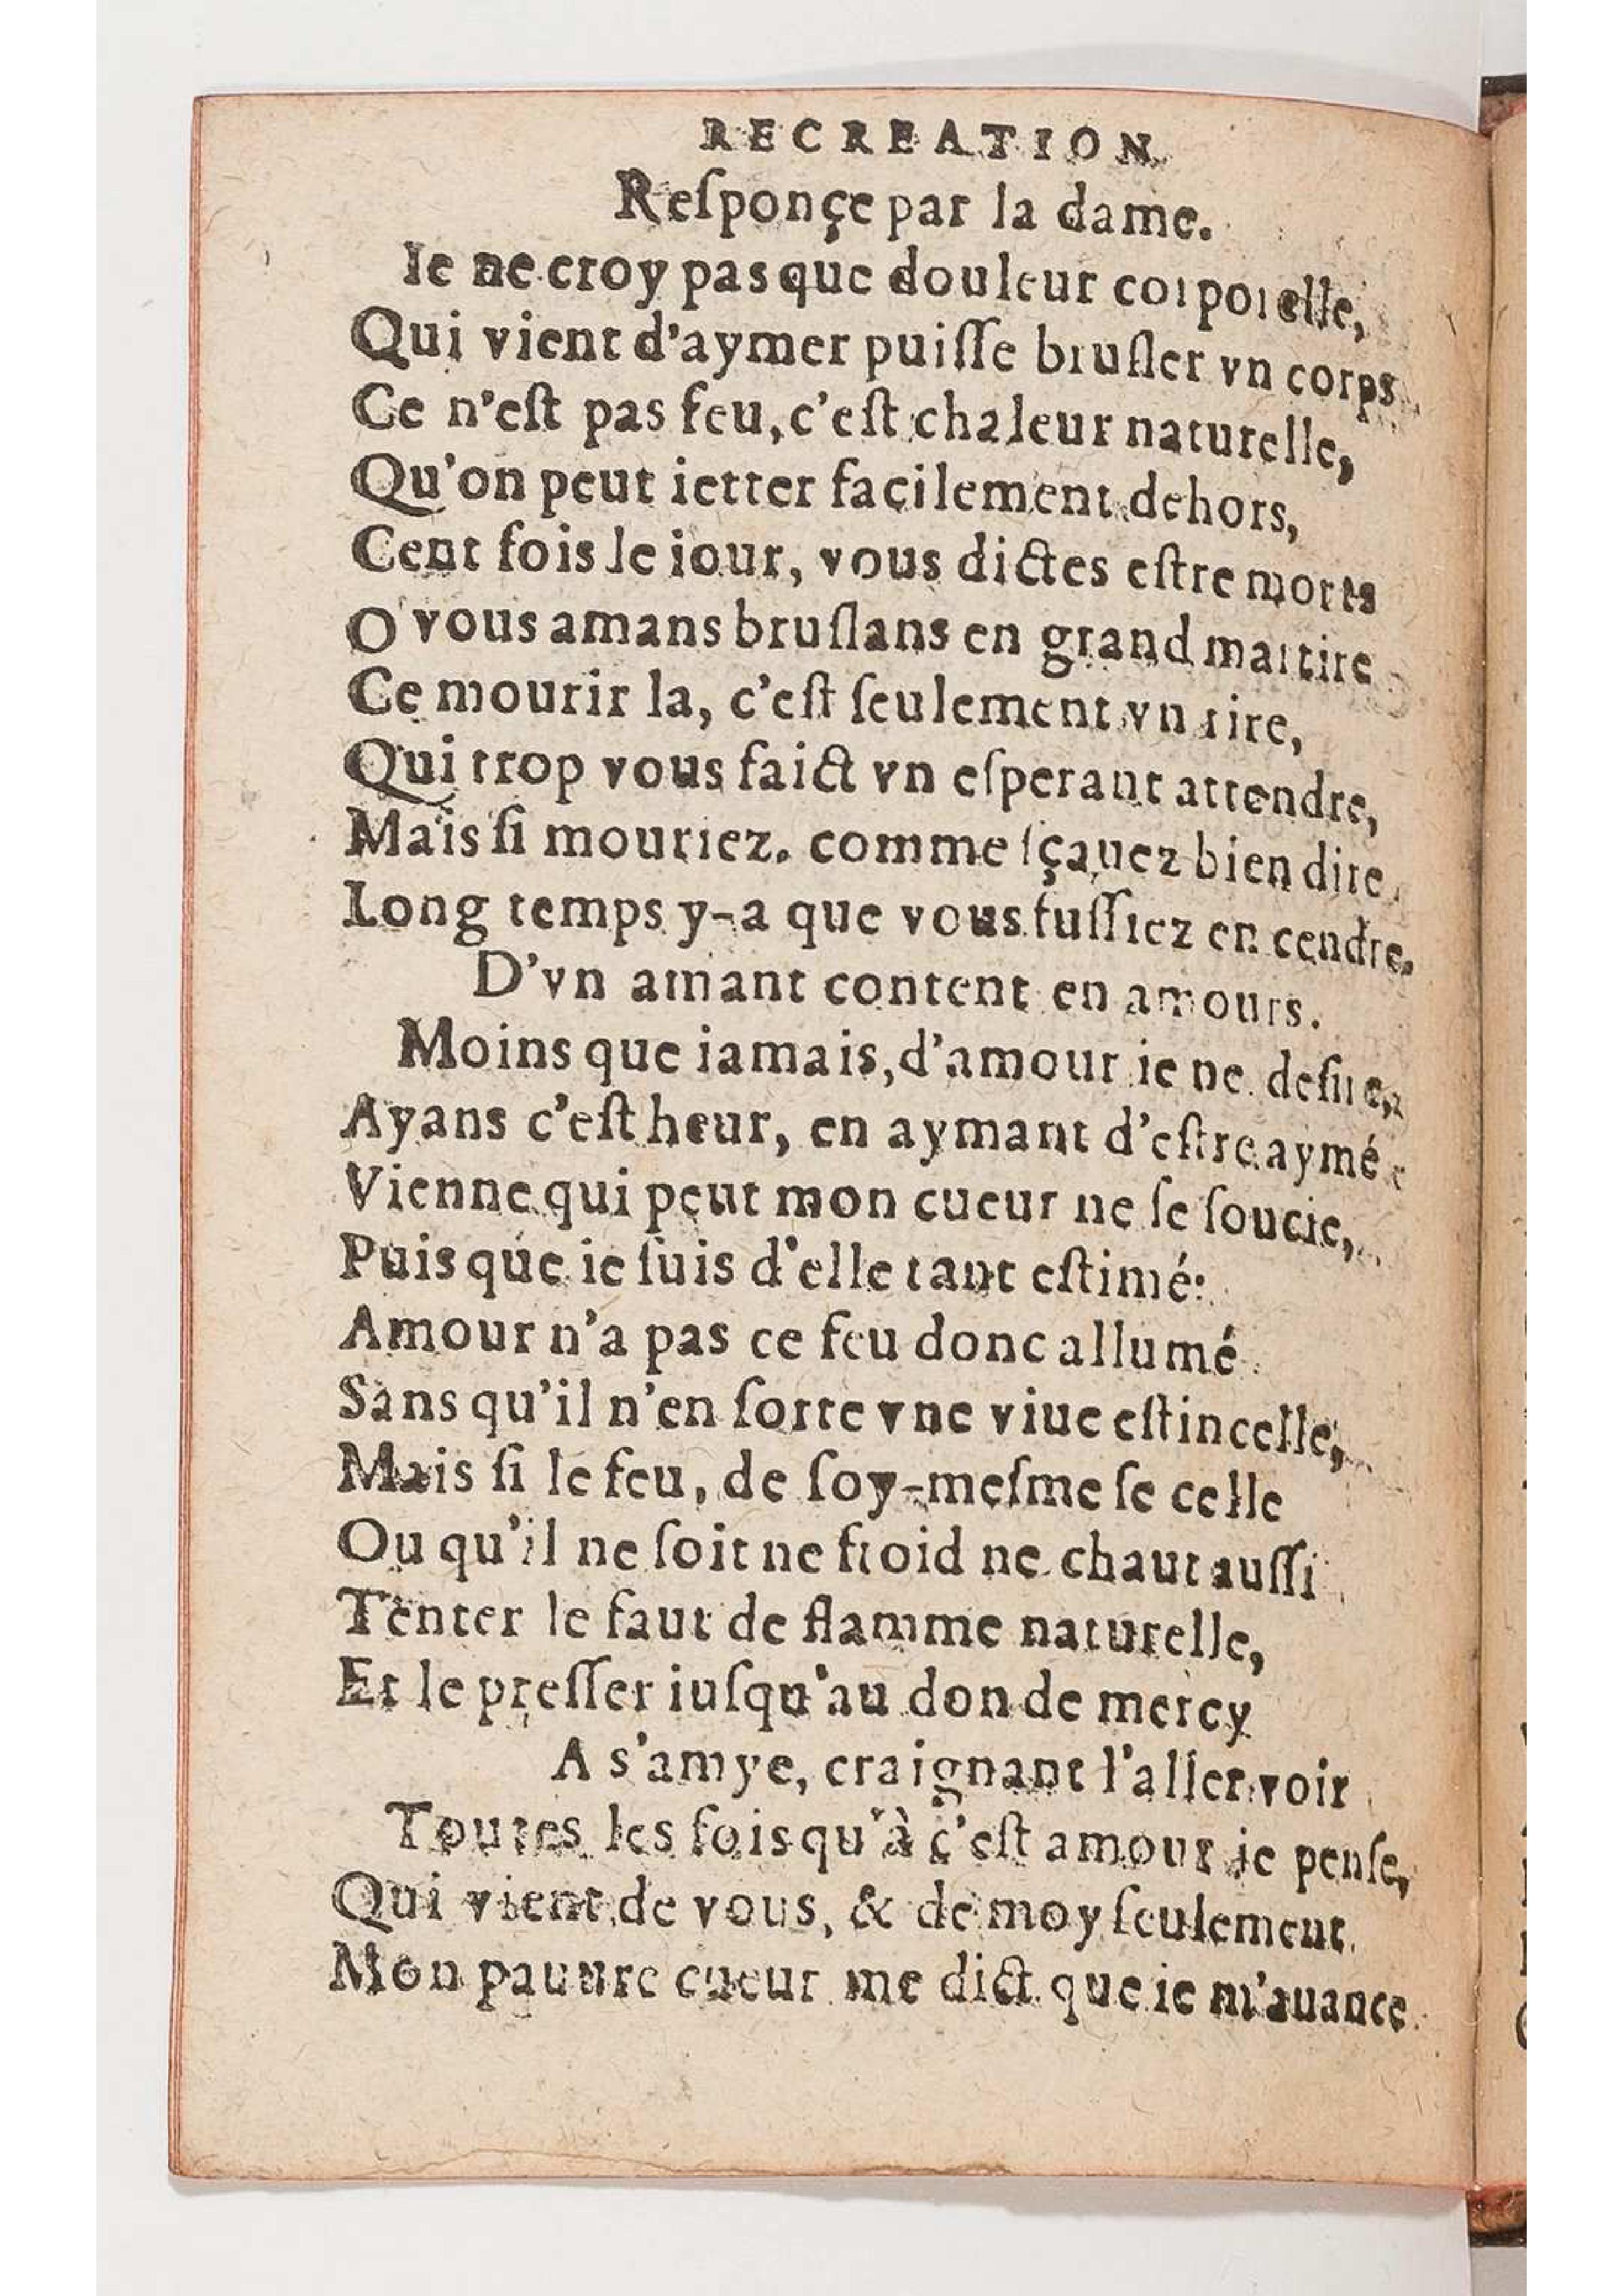 RECREATION
Reſponçe par la dame.
Ie ne croy pas que douleur corporelle,
Qui vient d'aymer puiſſe bruſler vn corps
Ce n'eſt pas feu, c'eſt chaleur naturelle,
Qu'on peut ietter facilement dehors,
Cent fois le iour, vous dictes eſtre morts
O vous amans bruſlans en grand martire
Ce mourir la, c'eſt ſeulement vn rire,
Qui trop vous faict vn eſperant attendre,
Mais ſi mouriez. comme ſçauez bien dire,
Long temps y-a que vous fuſſiez en cendre.
D'vn amant content en amours.
Moins que iamais, d'amour ie ne deſire,
Ayans c'eſt heur, en aymant d'eſtre aymé
Vienne qui peut mon cueur ne ſe ſoucie,
Puis que ie ſuis d'elle tant eſtimé:
Amour n'a pas ce feu donc allumé
Sans qu'il n'en ſorte vne viue eſtincelle,
Mais ſi le feu, de ſoy-meſme ſe celle
Ou qu'il ne ſoit ne froid ne chaut auſſi
Tenter le faut de flamme naturelle,
Et le preſſer iuſqu'au don de mercy
A s'amye, craignant l'aller voir
Toutes les fois qu'à c'eſt amour ie penſe,
Qui vient de vous, & de moy ſeulement.
Mon pauure cueur me dict que ie m'auance